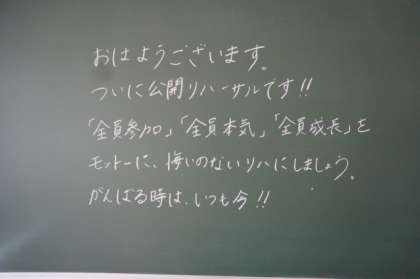 おはようございます。
ついに公開リハーサルです!!
「全員参加」「全員本気」「全員成長」を
モットーに、悔いのないリハにしましょう。
がんばる時は、いつも今!!